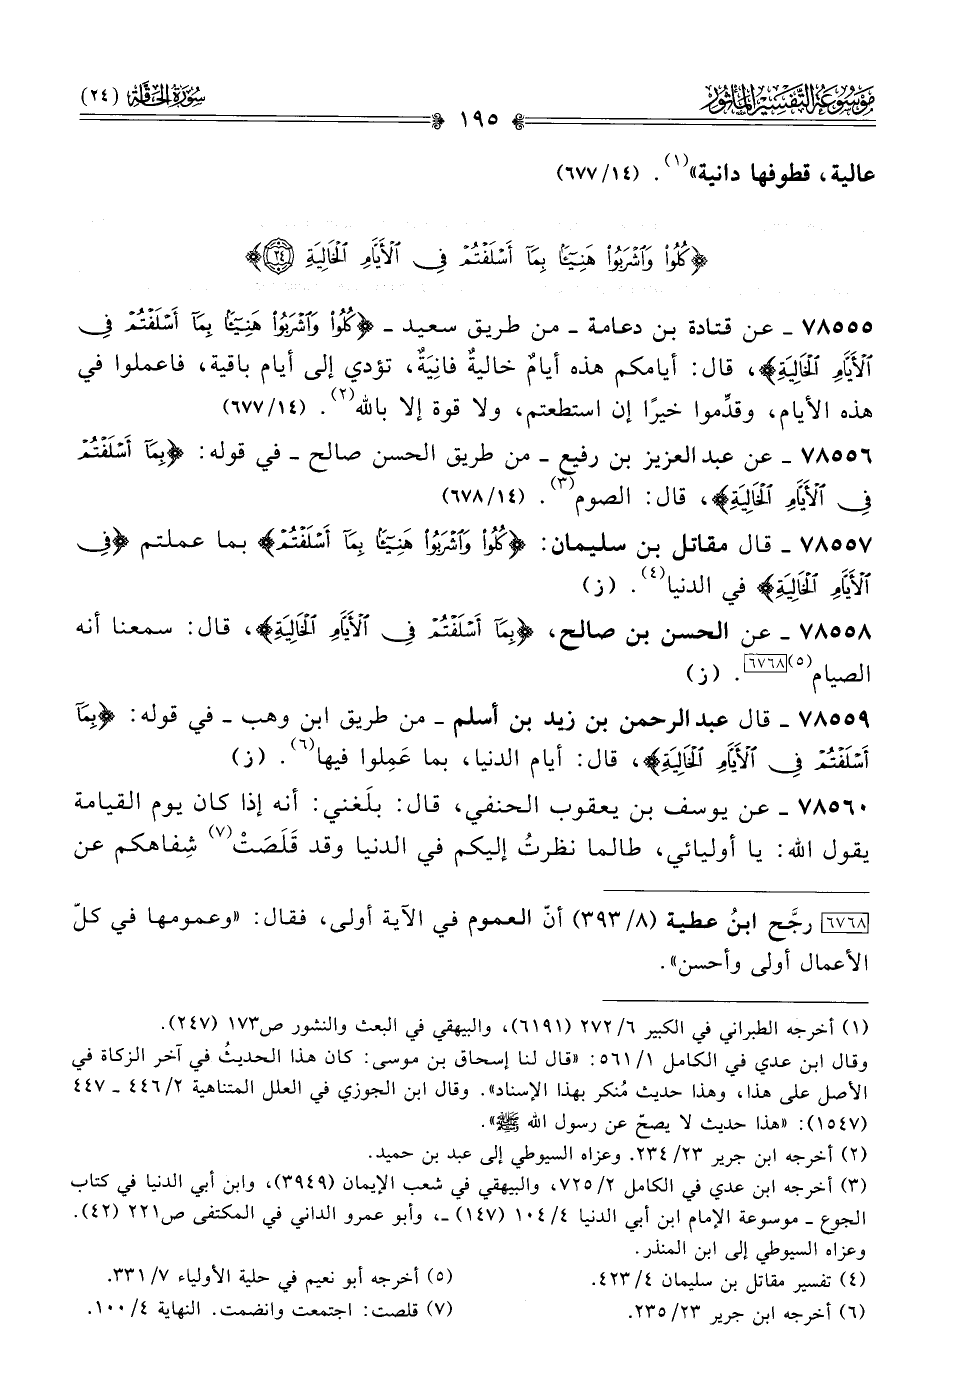 موسوعة التفسير المأثور
سورة الحاقة (٢٤)
١٩٥
عالية، قطوفها دانية»(١). (٦٧٧/١٤)
﴿كُلُوا۟ وَٱشْرَبُوا۟ هَنِيٓـًٔۢا بِمَآ أَسْلَفْتُمْ فِى ٱلْأَيَّامِ ٱلْخَالِيَةِ ٢٤﴾
٧٨٥٥٥ ـ عن قتادة بن دعامة ـ من طريق سعيد ـ ﴿كُلُوا۟ وَٱشْرَبُوا۟ هَنِيٓـًٔۢا بِمَآ أَسْلَفْتُمْ فِى
ٱلْأَيَّامِ ٱلْخَالِيَةِ﴾، قال: أيامكم هذه أيامٌ خاليةٌ فانِيَةٌ، تؤدي إلى أيام باقية، فاعملوا في
هذه الأيام، وقدِّموا خيرًا إن استطعتم، ولا قوة إلا بالله(٢). (٦٧٧/١٤)
٧٨٥٥٦ ـ عن عبد العزيز بن رفيع ـ من طريق الحسن صالح ـ في قوله: ﴿بِمَآ أَسْلَفْتُمْ
فِى ٱلْأَيَّامِ ٱلْخَالِيَةِ﴾، قال: الصوم(٣). (٦٧٨/١٤)
٧٨٥٥٧ ـ قال مقاتل بن سليمان: ﴿كُلُوا۟ وَٱشْرَبُوا۟ هَنِيٓـًٔۢا بِمَآ أَسْلَفْتُمْ﴾ بما عملتم ﴿فِى
ٱلْأَيَّامِ ٱلْخَالِيَةِ﴾ في الدنيا(٤). (ز)
٧٨٥٥٨ ـ عن الحسن بن صالح، ﴿بِمَآ أَسْلَفْتُمْ فِى ٱلْأَيَّامِ ٱلْخَالِيَةِ﴾، قال: سمعنا أنه
الصيام(٥)[٦٧٦٨]. (ز)
٧٨٥٥٩ ـ قال عبد الرحمن بن زيد بن أسلم ـ من طريق ابن وهب ـ في قوله: ﴿بِمَآ
أَسْلَفْتُمْ فِى ٱلْأَيَّامِ ٱلْخَالِيَةِ﴾، قال: أيام الدنيا، بما عَمِلوا فيها(٦). (ز)
٧٨٥٦٠ ـ عن يوسف بن يعقوب الحنفي، قال: بلَغني: أنه إذا كان يوم القيامة
يقول الله: يا أوليائي، طالما نظرتُ إليكم في الدنيا وقد قَلَصَتْ(٧) شِفاهكم عن
[٦٧٦٨] رجَّح ابنُ عطية (٣٩٣/٨) أنّ العموم في الآية أولى، فقال: «وعمومها في كلّ
الأعمال أولى وأحسن».
(١) أخرجه الطبراني في الكبير ٢٧٢/٦ (٦١٩١)، والبيهقي في البعث والنشور ص١٧٣ (٢٤٧).
وقال ابن عدي في الكامل ٥٦١/١: «قال لنا إسحاق بن موسى: كان هذا الحديثُ في آخر الزكاة في
الأصل على هذا، وهذا حديث مُنكر بهذا الإسناد». وقال ابن الجوزي في العلل المتناهية ٤٤٦/٢ ـ ٤٤٧
(١٥٤٧): «هذا حديث لا يصحّ عن رسول الله ﷺ».
(٢) أخرجه ابن جرير ٢٣٤/٢٣. وعزاه السيوطي إلى عبد بن حميد.
(٣) أخرجه ابن عدي في الكامل ٧٢٥/٢، والبيهقي في شعب الإيمان (٣٩٤٩)، وابن أبي الدنيا في كتاب
الجوع ـ موسوعة الإمام ابن أبي الدنيا ١٠٤/٤ (١٤٧) ـ، وأبو عمرو الداني في المكتفى ص٢٢١ (٤٢).
وعزاه السيوطي إلى ابن المنذر.
(٤) تفسير مقاتل بن سليمان ٤٢٣/٤.
(٥) أخرجه أبو نعيم في حلية الأولياء ٣٣١/٧.
(٦) أخرجه ابن جرير ٢٣٥/٢٣.
(٧) قلصت: اجتمعت وانضمت. النهاية ١٠٠/٤.